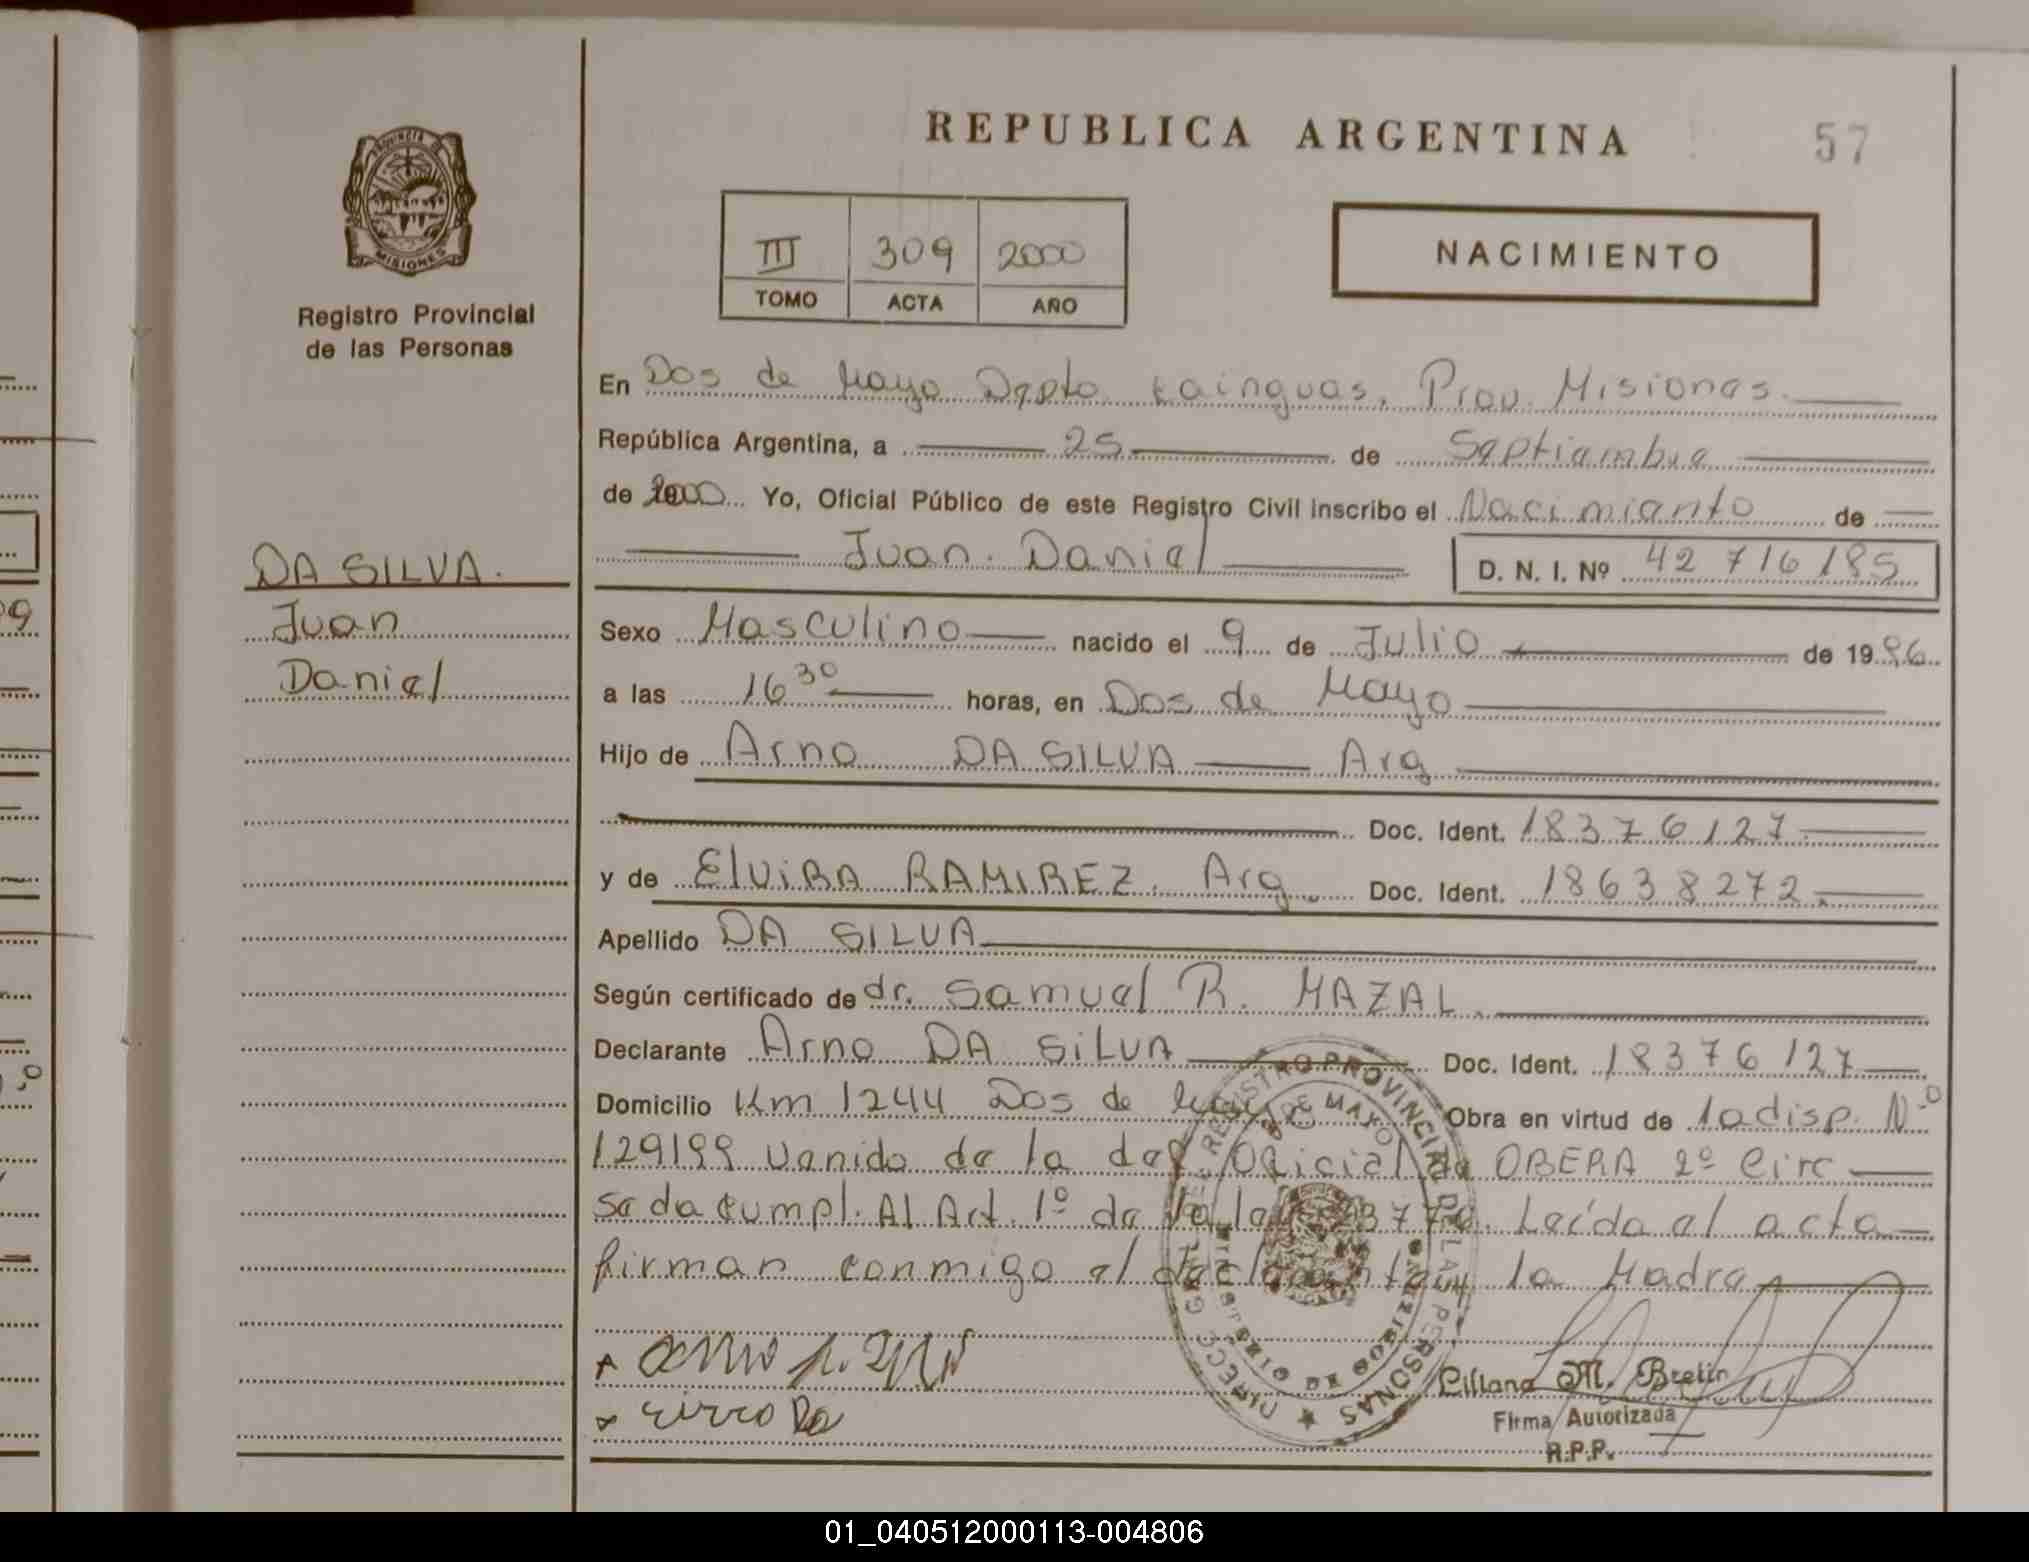 REPUBLICA ARGENTINA
57
PROVINCIA DE
MISIONES
Registro Provincial
de las Personas
III 309 2000
TOMO ACTA AÑO
NACIMIENTO
En Dos de Mayo Depto Cainguas, Prov. Misiones.
República Argentina, a 25 de Septiembre
de 2000 Yo, Oficial Público de este Registro Civil inscribo el Nacimiento de
Juan Daniel
D. N. I. Nº 42 716 185
DA SILVA.
Juan
Daniel
Sexo Masculino nacido el 9 de Julio de 1996
a las 16 30 horas, en Dos de Mayo
Hijo de Arno DA SILVA Arg
Doc. Ident. 18376127
y de ElViRA RAMIREZ. Arg. Doc. Ident. 18638272.
Apellido DA SILVA
Según certificado de dr. Samuel R. MAZAL.
Declarante Arno DA SiLVA Doc. Ident. 18376127
Domicilio Km 1244 Dos de Mayo Obra en virtud de la disp. N.º
129199 venido de la del. Oficial de OBERA 2º Circ
se da cumpl. Al Art. 1º de la ley 23776. Leída el acta
firman conmigo el declarante y la Madre
REGISTRO PROVINCIAL DE LAS PERSONAS
DOS DE MAYO
MISIONES
Liliana M. Brelin
Firma Autorizada
R.P.P.
01_040512000113-004806